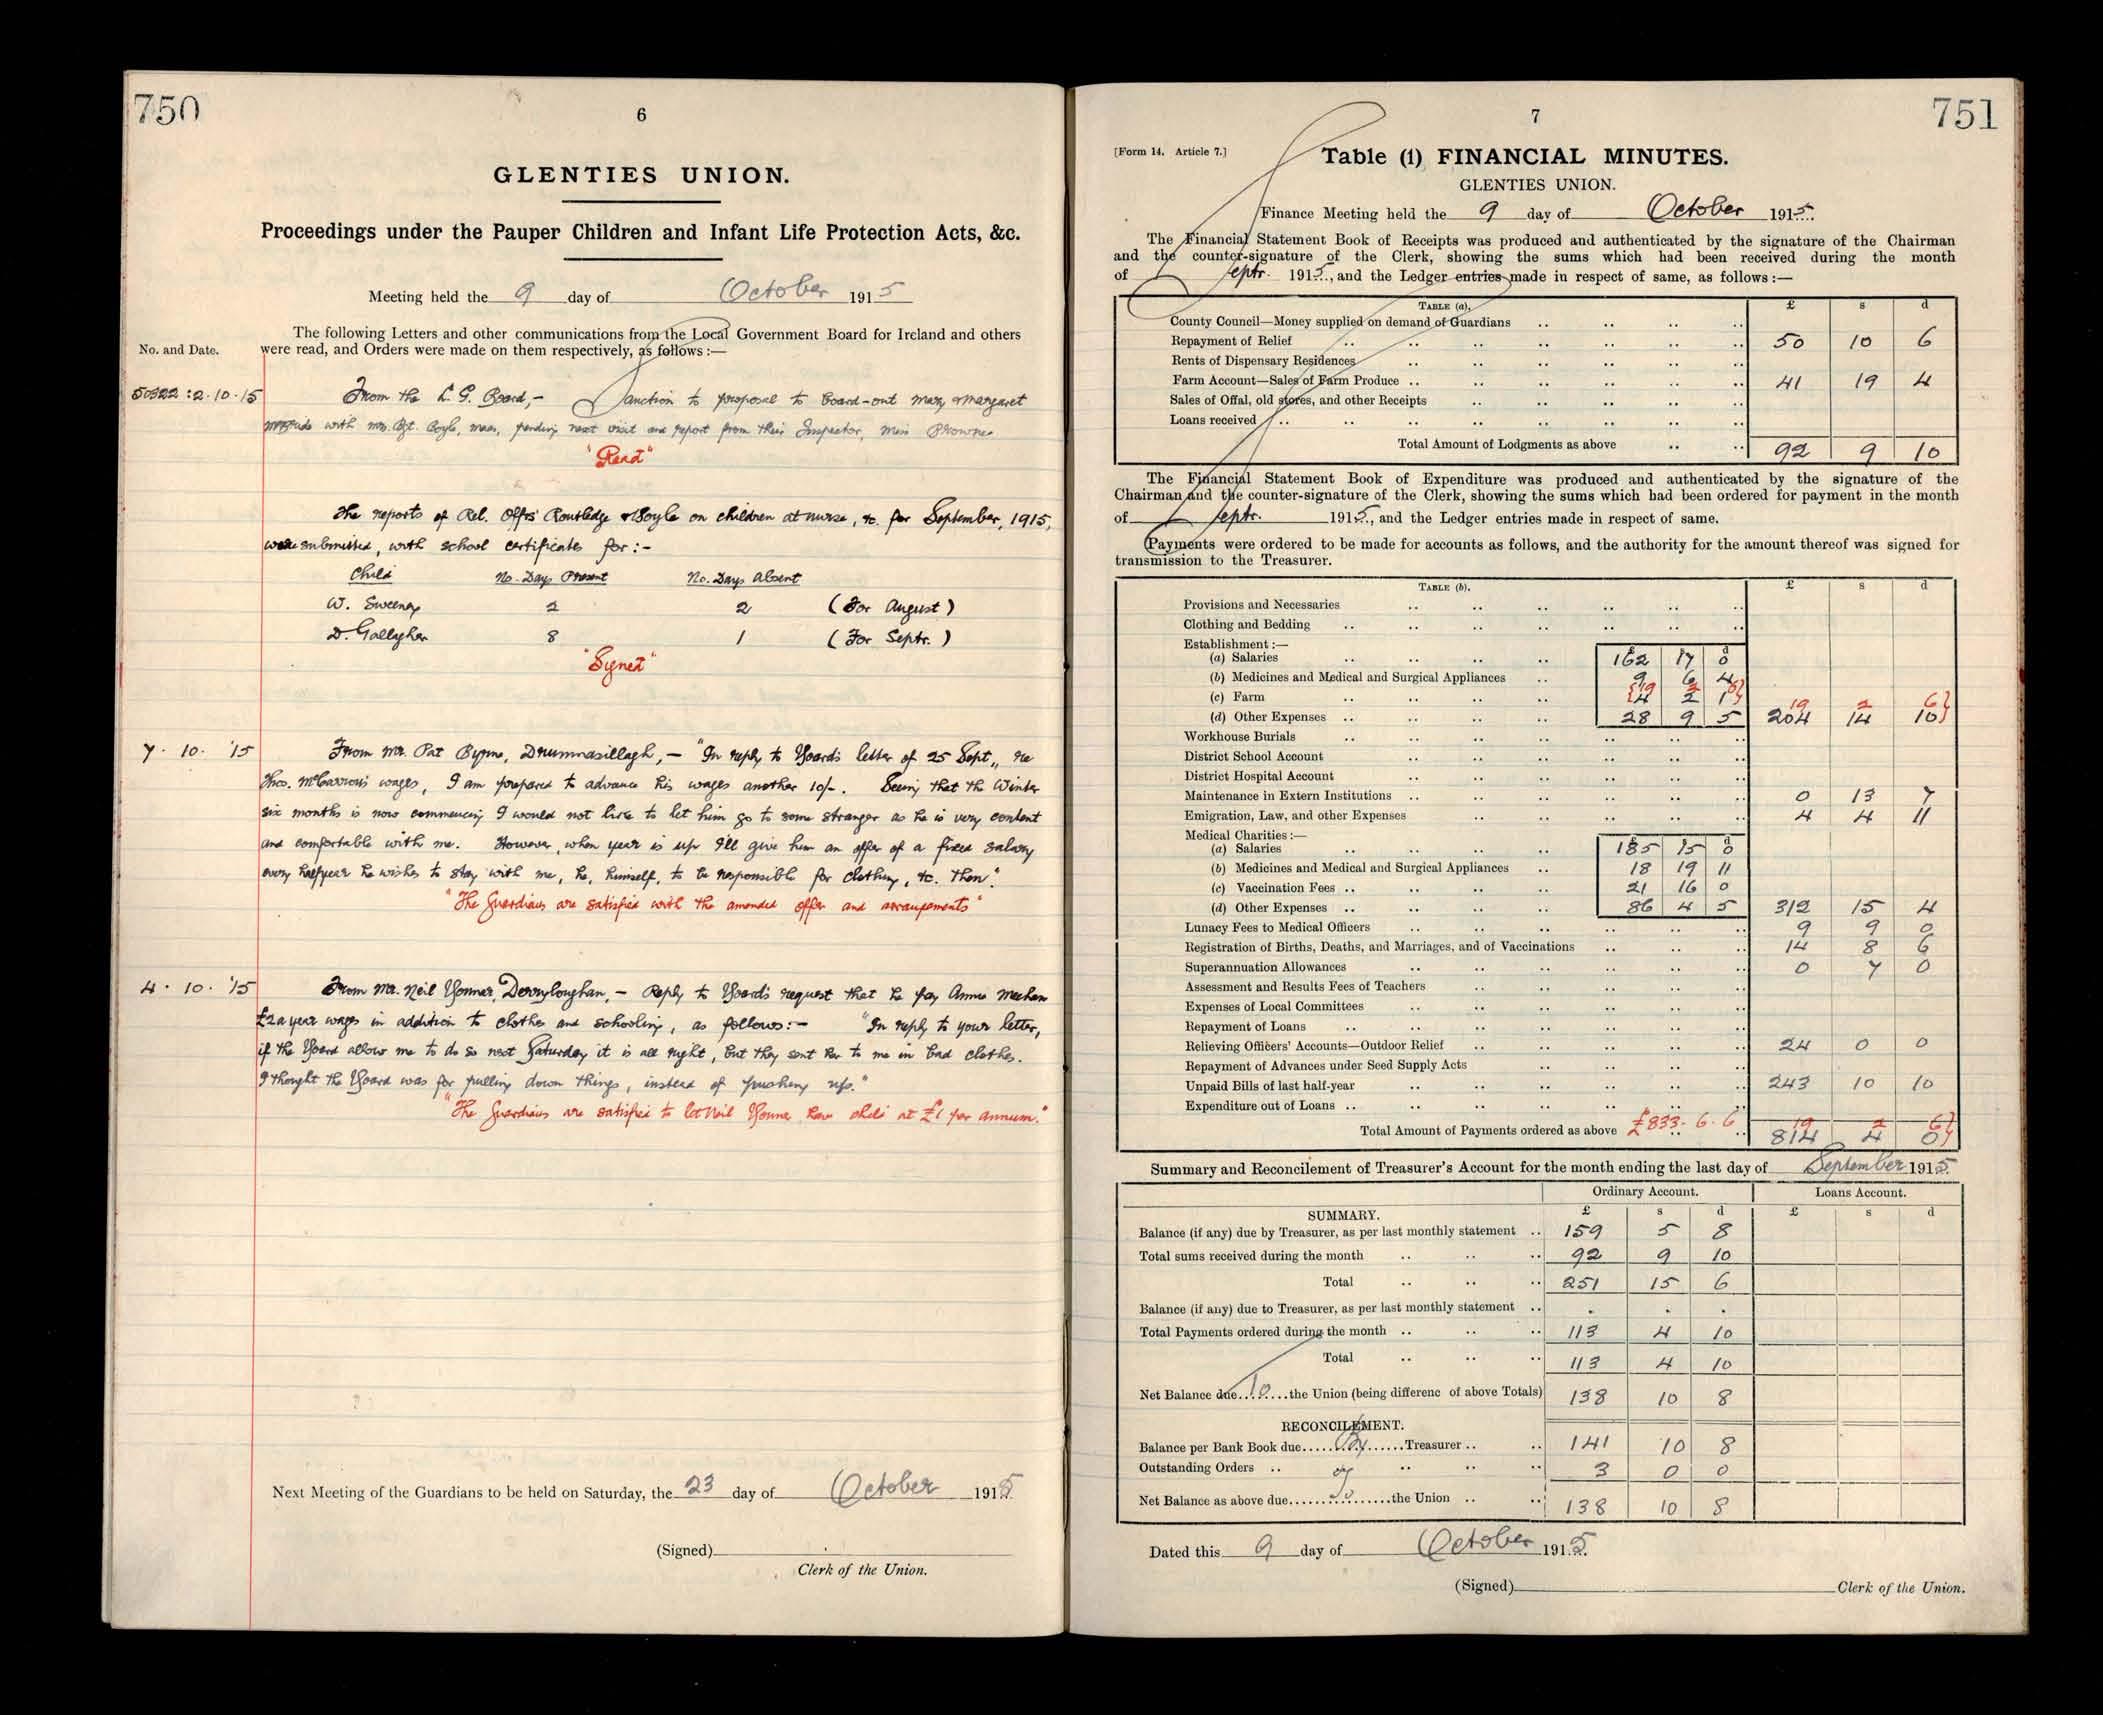 750
6
GLENTIES UNION.
Proceedings under the Pauper Children and Infant Life Protection Acts, &c.
Meeting held the 9 day of October 1915
The following Letters and other communications from the Local Government Board for Ireland and others
No. and Date. were read, and Orders were made on them respectively, as follows :—
50822 : 2 . 10 . 15 From the L. G. Board, - Sanction to proposal to board-out Mary & Margaret
McBride with Mrs. Bgt. Boyle, Maas, pending next visit and report from their Inspector, Miss Browne
"Read"
The reports of Rel. Offrs' Routledge & Boyle on children at nurse, &c. for September, 1915,
were submitted, with school certificates for :-
Child No. Days Present No. Days Absent
W. Sweeney 2 2 (For August)
D. Gallagher 8 1 (For Septr.)
"Signed"
7 . 10 . '15 From Mr. Pat Byrne, Drumnasillagh, - "In reply to Board's letter of 25 Sept., re
Thos. McCarron's wages, I am prepared to advance his wages another 10/-. Seeing that the Winter
six months is now commencing I would not like to let him go to some stranger as he is very content
and comfortable with me. However, when year is up I'll give him an offer of a fixed salary
every halfyear he wishes to stay with me, he, himself, to be responsible for clothing, &c. then".
"The Guardians are satisfied with the amended offer and arrangements"
4 . 10 . '15 From Mr. Neil Bonner, Derryloughan, - Reply to Board's request that he pay Annie Meehan
£2 a year wages in addition to clothes and schooling, as follows :- "In reply to your letter,
if the Board allow me to do so next Saturday it is all right, but they sent her to me in bad clothes.
I thought the Board was for pulling down things, instead of pushing up."
"The Guardians are satisfied to let Neil Bonner have child at £1 per annum."
Next Meeting of the Guardians to be held on Saturday, the 23 day of October 1915
(Signed)
Clerk of the Union.
7
751
[Form 14. Article 7.] Table (1) FINANCIAL MINUTES.
GLENTIES UNION.
Finance Meeting held the 9 day of October 1915.
The Financial Statement Book of Receipts was produced and authenticated by the signature of the Chairman
and the counter-signature of the Clerk, showing the sums which had been received during the month
of Septr. 1915., and the Ledger entries made in respect of same, as follows :—
TABLE (a). £ s d
County Council—Money supplied on demand of Guardians
Repayment of Relief 50 10 6
Rents of Dispensary Residences
Farm Account—Sales of Farm Produce 41 19 4
Sales of Offal, old stores, and other Receipts
Loans received
Total Amount of Lodgments as above 92 9 10
The Financial Statement Book of Expenditure was produced and authenticated by the signature of the
Chairman and the counter-signature of the Clerk, showing the sums which had been ordered for payment in the month
of Septr. 1915., and the Ledger entries made in respect of same.
Payments were ordered to be made for accounts as follows, and the authority for the amount thereof was signed for
transmission to the Treasurer.
TABLE (b). £ s d
Provisions and Necessaries
Clothing and Bedding
Establishment :—
(a) Salaries 162 17 0
(b) Medicines and Medical and Surgical Appliances 9 6 4
(c) Farm {19 2 6} 4 2 1
(d) Other Expenses 28 9 5 19 2 6} 204 14 10
Workhouse Burials
District School Account
District Hospital Account
Maintenance in Extern Institutions 0 13 7
Emigration, Law, and other Expenses 4 4 11
Medical Charities :—
(a) Salaries 185 15 0
(b) Medicines and Medical and Surgical Appliances 18 19 11
(c) Vaccination Fees 21 16 0
(d) Other Expenses 86 4 5 312 15 4
Lunacy Fees to Medical Officers 9 9 0
Registration of Births, Deaths, and Marriages, and of Vaccinations 14 8 6
Superannuation Allowances 0 7 0
Assessment and Results Fees of Teachers
Expenses of Local Committees
Repayment of Loans
Relieving Officers' Accounts—Outdoor Relief 24 0 0
Repayment of Advances under Seed Supply Acts
Unpaid Bills of last half-year 243 10 10
Expenditure out of Loans
Total Amount of Payments ordered as above £833 - 6 - 6 19 2 6} 814 4 0
Summary and Reconcilement of Treasurer's Account for the month ending the last day of September 1915.
Ordinary Account. Loans Account.
SUMMARY. £ s d £ s d
Balance (if any) due by Treasurer, as per last monthly statement 159 5 8
Total sums received during the month 92 9 10
Total 251 15 6
Balance (if any) due to Treasurer, as per last monthly statement . . .
Total Payments ordered during the month 113 4 10
Total 113 4 10
Net Balance due To the Union (being differenc of above Totals) 138 10 8
RECONCILEMENT.
Balance per Bank Book due By Treasurer 141 10 8
Outstanding Orders 3 0 0
Net Balance as above due To the Union 138 10 8
Dated this 9 day of October 1915.
(Signed) Clerk of the Union.